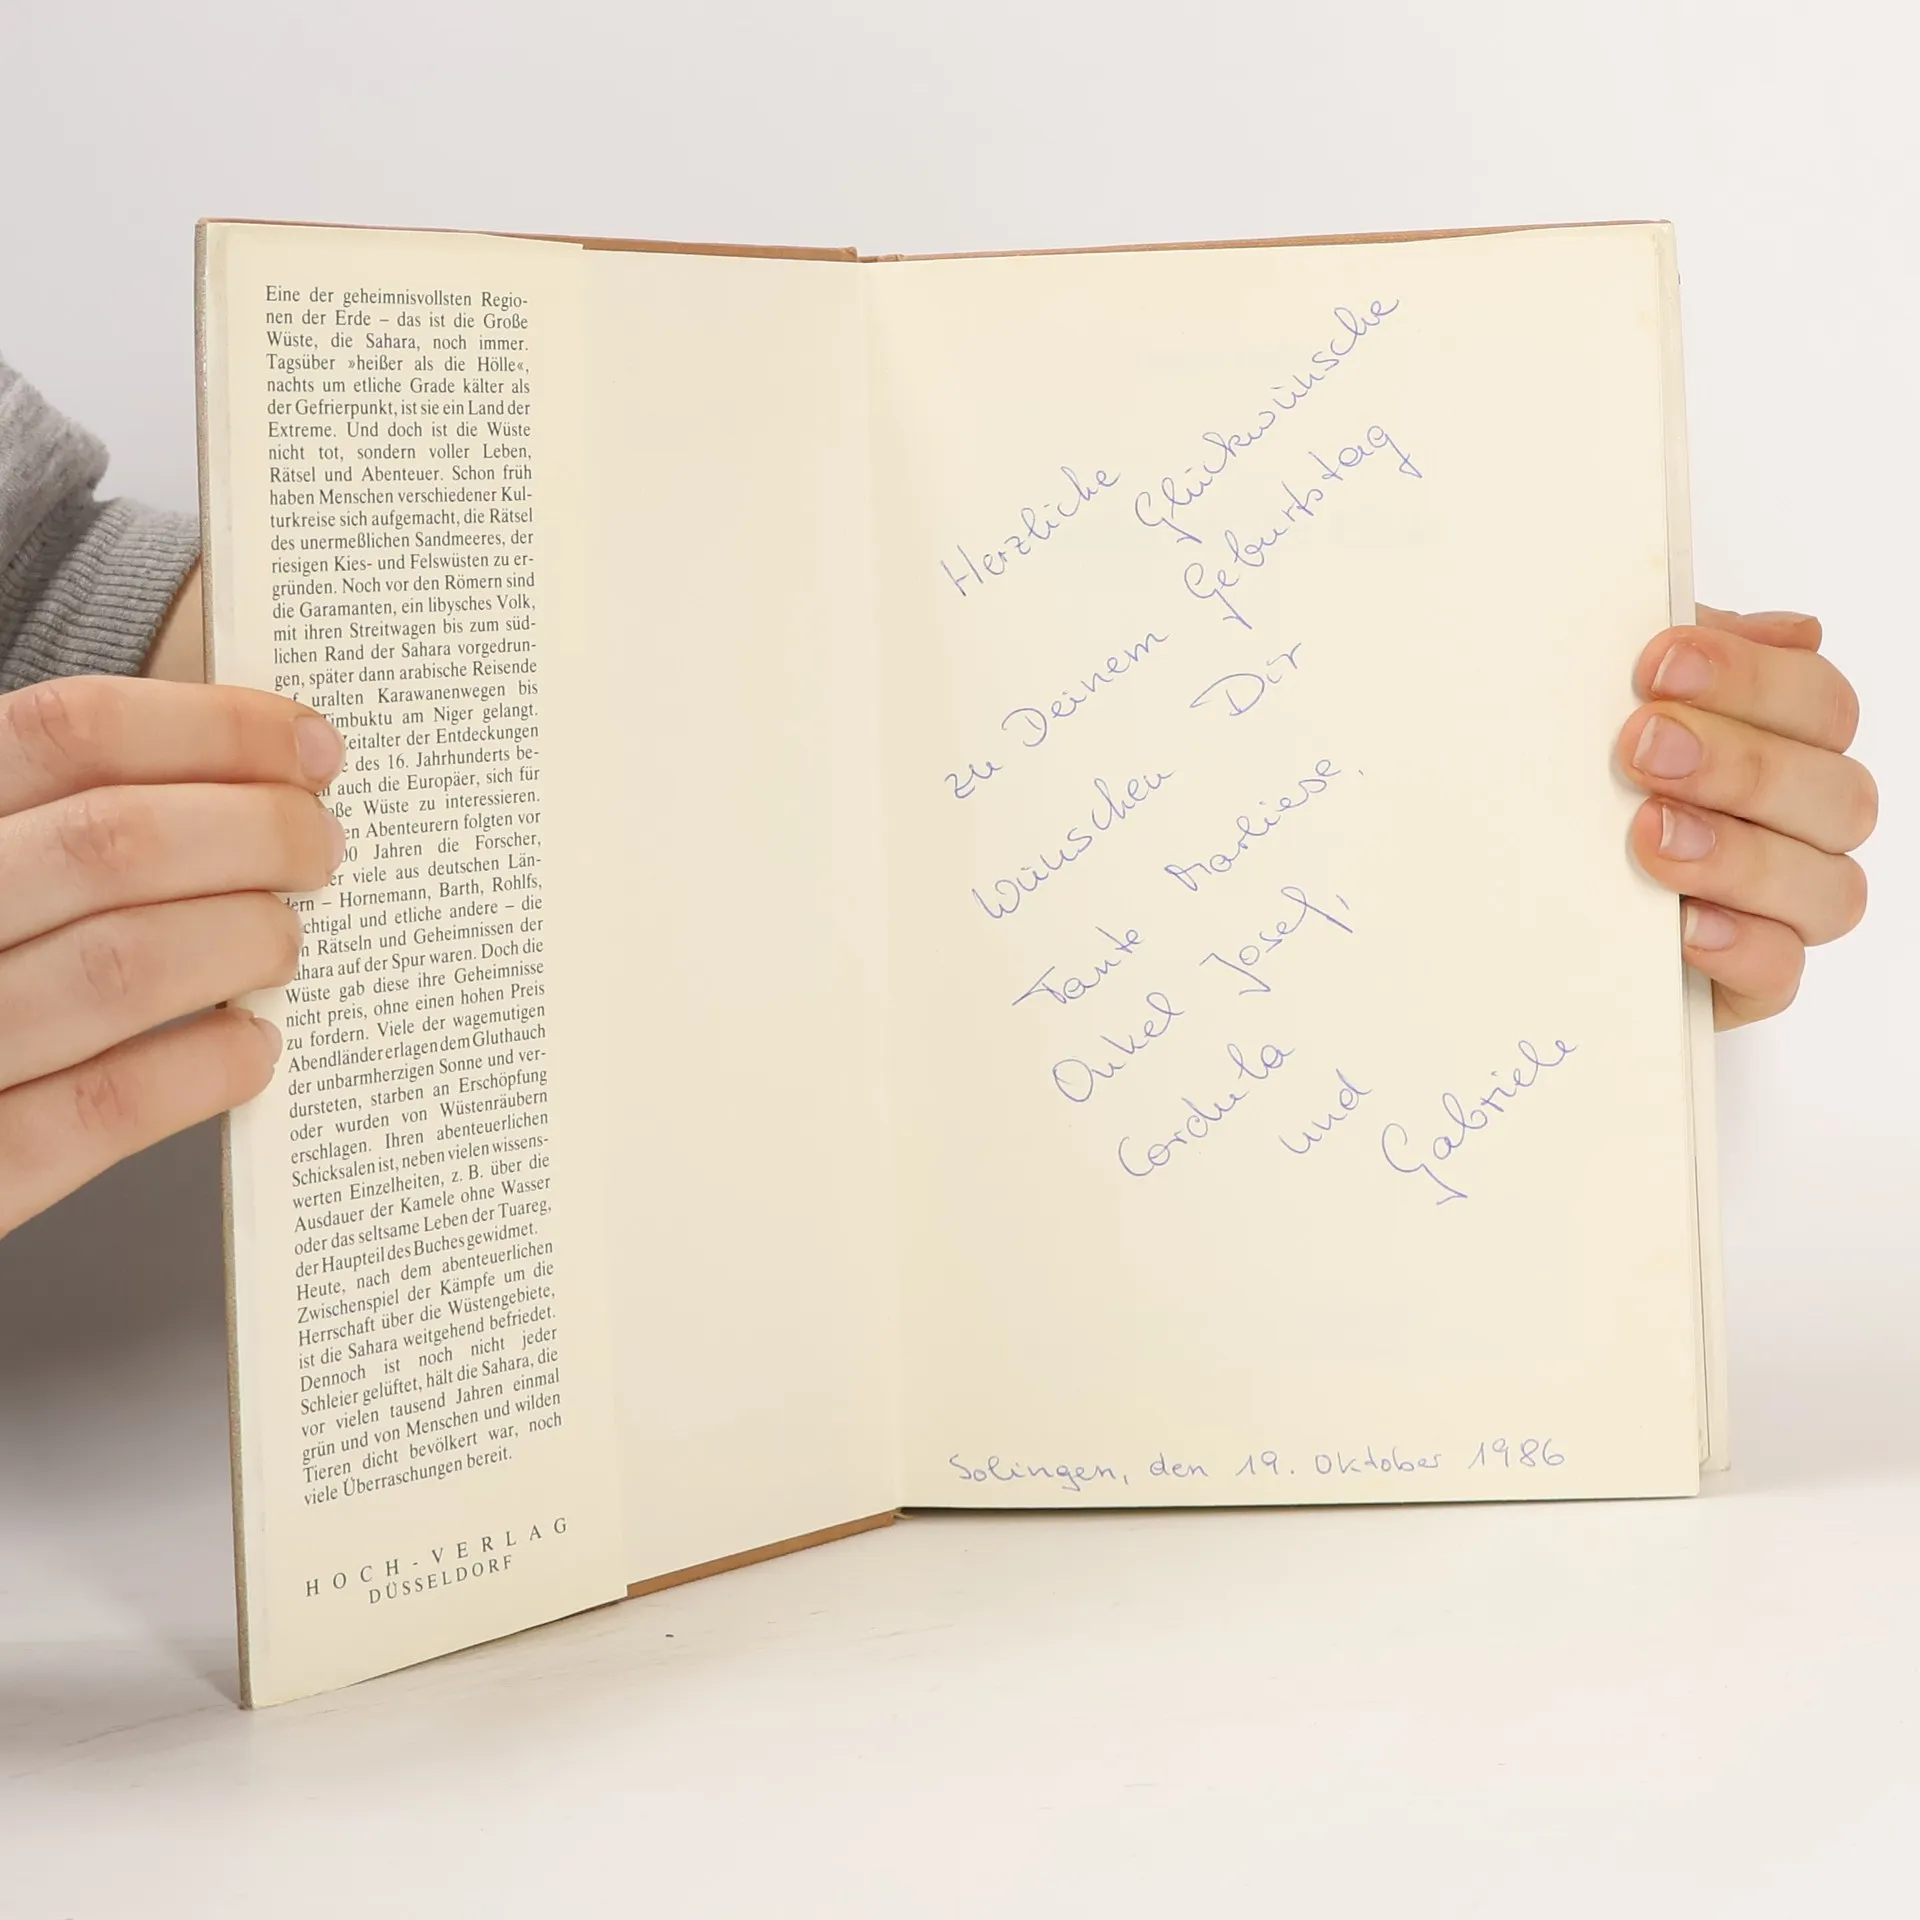 Eine der geheimnisvollsten Regio-
nen der Erde – das ist die Große
Wüste, die Sahara, noch immer.
Tagsüber »heißer als die Hölle«,
nachts um etliche Grade kälter als
der Gefrierpunkt, ist sie ein Land der
Extreme. Und doch ist die Wüste
nicht tot, sondern voller Leben,
Rätsel und Abenteuer. Schon früh
haben Menschen verschiedener Kul-
turkreise sich aufgemacht, die Rätsel
des unermeßlichen Sandmeeres, der
riesigen Kies- und Felswüsten zu er-
gründen. Noch vor den Römern sind
die Garamanten, ein libysches Volk,
mit ihren Streitwagen bis zum süd-
lichen Rand der Sahara vorgedrun-
gen, später dann arabische Reisende
uralten Karawanenwegen bis
Timbuktu am Niger gelangt.
Zeitalter der Entdeckungen
des 16. Jahrhunderts be-
auch die Europäer, sich für
Wüste zu interessieren.
Abenteurern folgten vor
Jahren die Forscher,
viele aus deutschen Län-
dern – Hornemann, Barth, Rohlfs,
und etliche andere – die
Rätseln und Geheimnissen der
Sahara auf der Spur waren. Doch die
Wüste gab diese ihre Geheimnisse
nicht preis, ohne einen hohen Preis
zu fordern. Viele der wagemutigen
Abendländer erlagen dem Gluthauch
der unbarmherzigen Sonne und ver-
dursteten, starben an Erschöpfung
oder wurden von Wüstenräubern
erschlagen. Ihren abenteuerlichen
Schicksalen ist, neben vielen wissens-
werten Einzelheiten, z. B. über die
Ausdauer der Kamele ohne Wasser
oder das seltsame Leben der Tuareg,
der Haupteil des Buches gewidmet.
Heute, nach dem abenteuerlichen
Zwischenspiel der Kämpfe um die
Herrschaft über die Wüstengebiete,
ist die Sahara weitgehend befriedet.
Dennoch ist noch nicht jeder
Schleier gelüftet, hält die Sahara, die
vor vielen tausend Jahren einmal
grün und von Menschen und wilden
Tieren dicht bevölkert war, noch
viele Überraschungen bereit.
HOCH-VERLAG
DÜSSELDORF
Herzliche Glückwünsche
zu Deinem Geburtstag
wünschen Dir
Tante Marliese,
Onkel Josef,
Cordula
und
Gabriele
Solingen, den 19. Oktober 1986